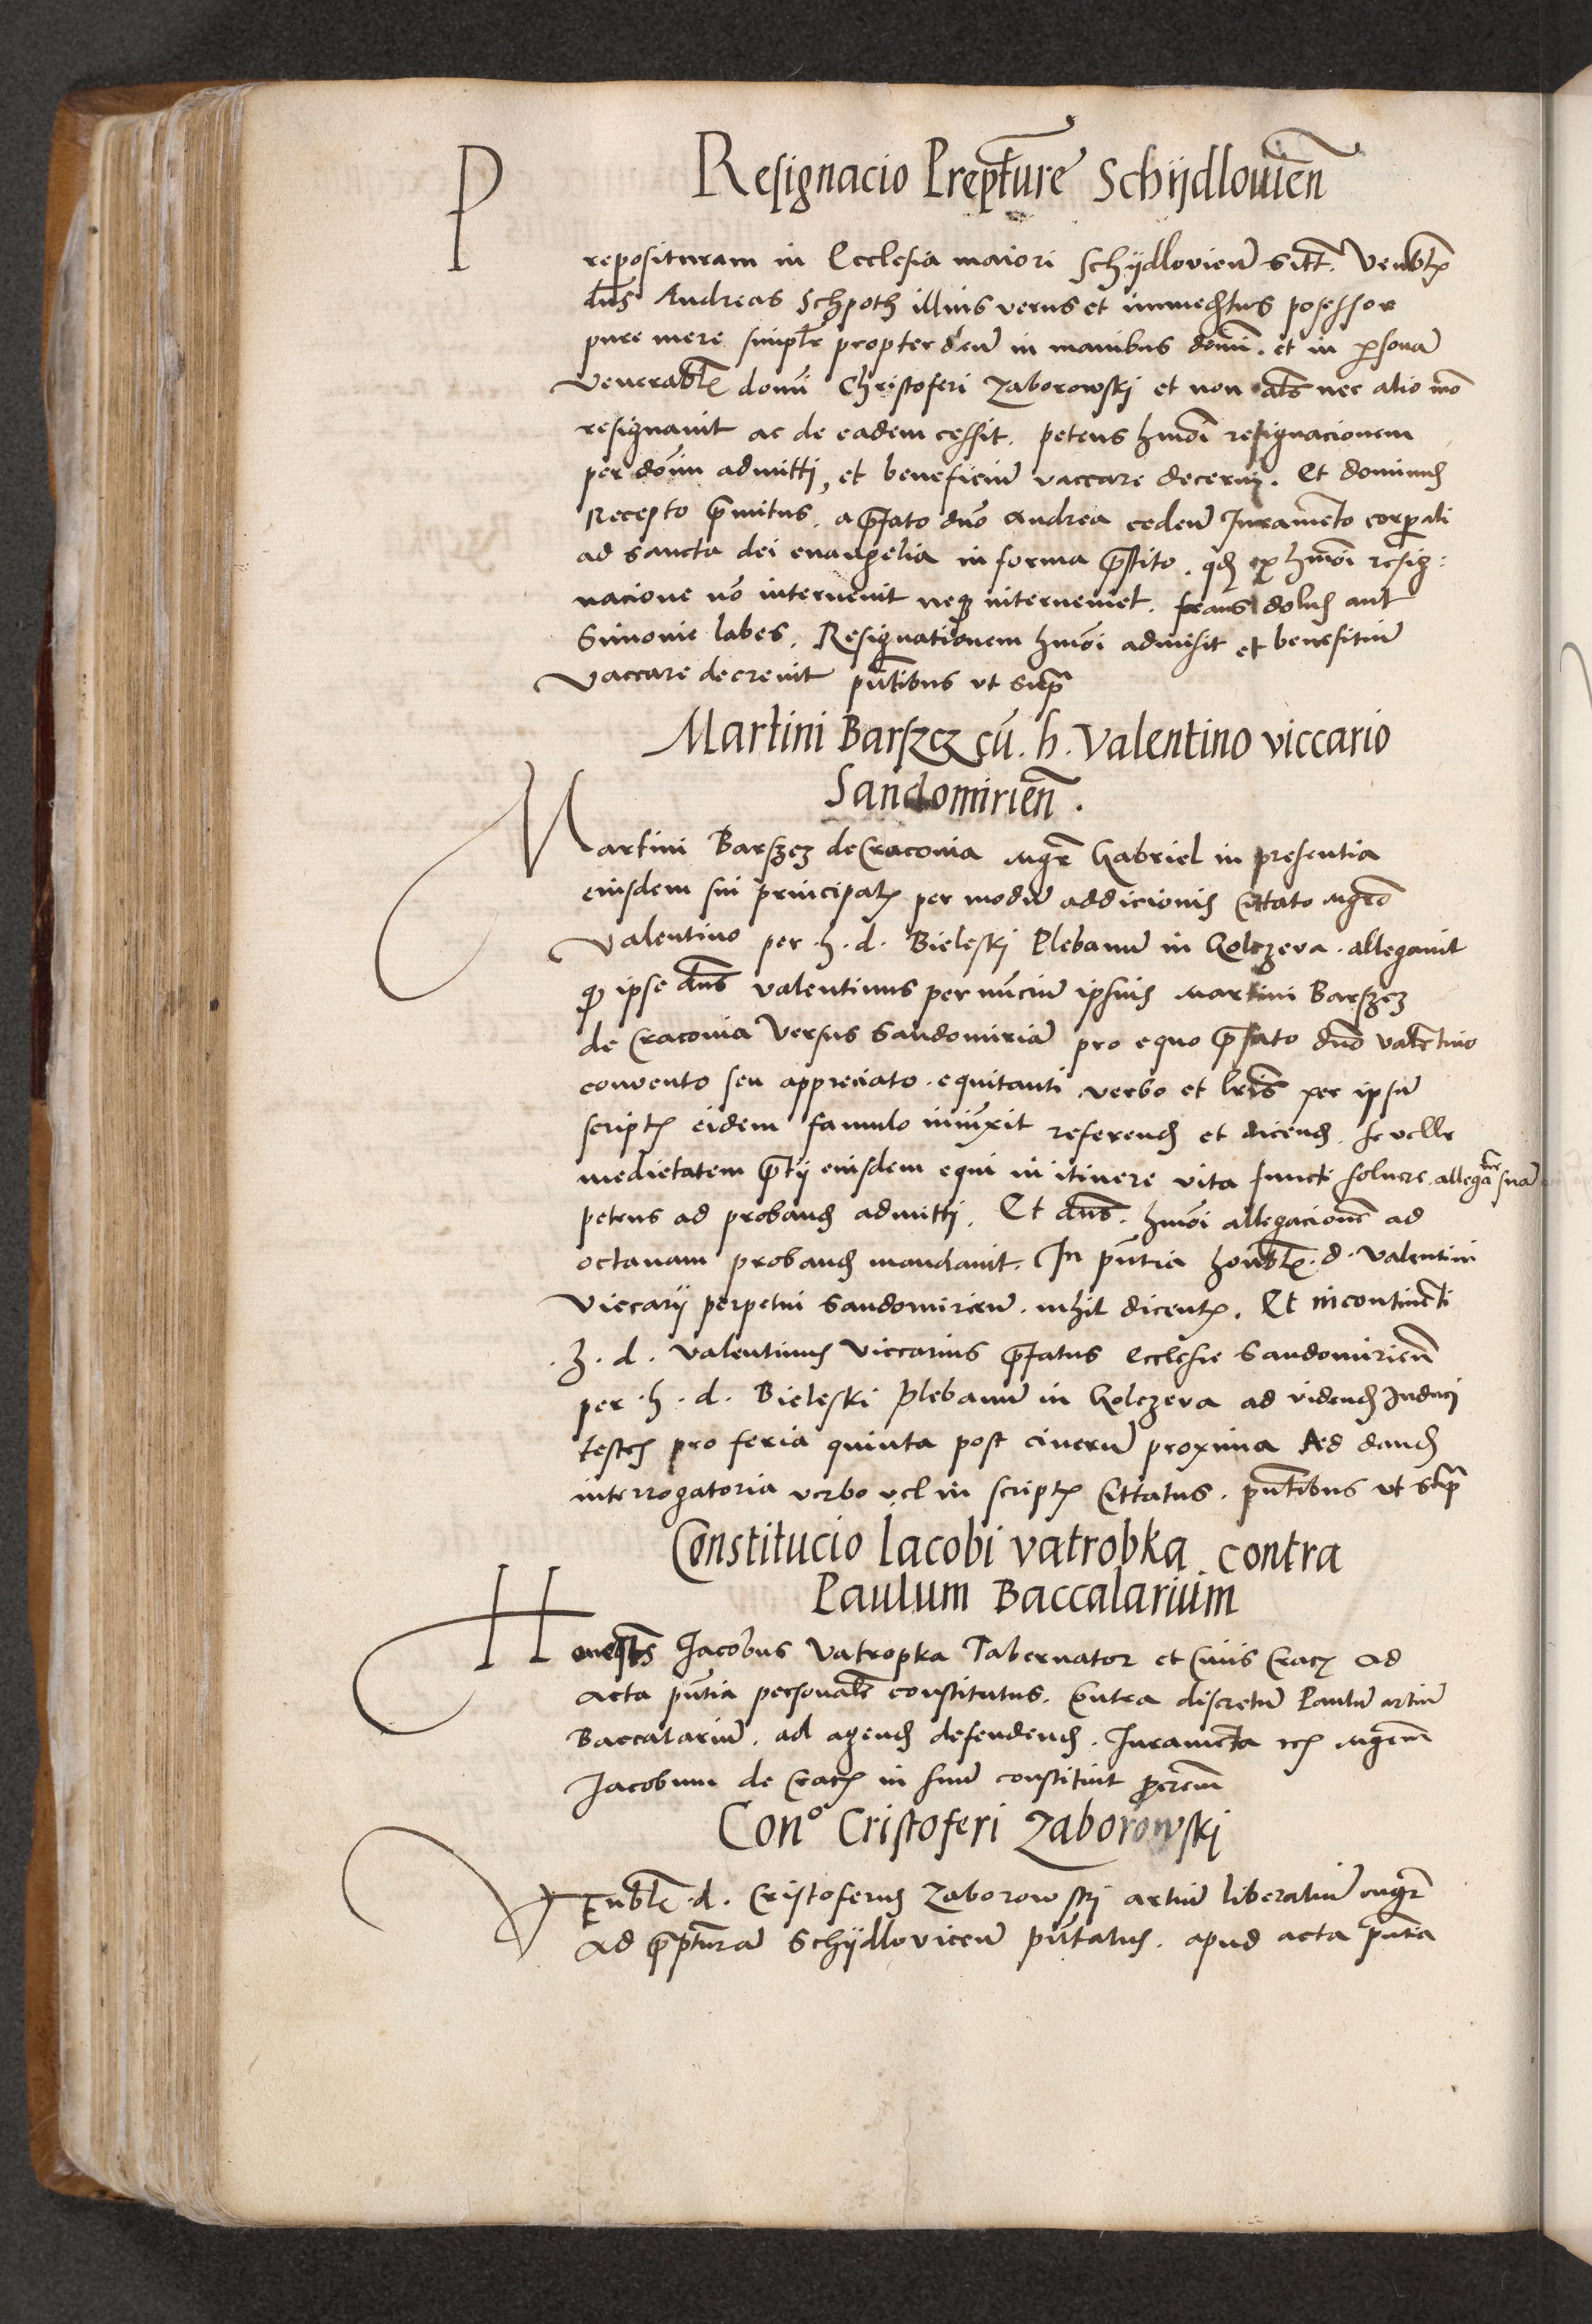 Resignacio Prepture Schijdlowien
Prepositturam in Ecclesia maiori Schijdlovien sitt. Venbłis
dns Andreas Schpoth illius verus et immediatus posessor
pure mere simplr propter deu in manibus domi. et in psona
Venerablis domi Christoferi Zaborowskj et non als nec alio mo
resignavit ac de eadem cessit. petens hmoi resignacionem
per domi admitti, et beneficiu vaccare decerni. Et dominus
Recepto pmitus a pfato dno Andrea ceden Juramento corpali
ad sancta dei evangelia in forma pstito. qd ex hmoi resig:
nacione no intervenit neq interveniet. fraus dolus aut
Simonie labes. Resignationem hmoi admisit et benefitiu
Vaccare decrevit pntibus ut supra
Martini Barszcz cu. h. Valentino viccario
Sandomirien.
Martini Barszcz de Cracovia mgr Gabriel in presentia
eiusdem sui principalis per modu addicionis Cittato mgro
Valentino per h. d. Bieleski Plebanu in Golczera. allegavit
q ipse dns valentinus per nunciu ipsius Martini Barszcz
de Cracovia versus Sandomiria pro equo pfato dno valentino
convento seu appreciato. equitanti verbo et lris per ipsu
scriptis eidem famulo iniunxit referend et dicend. se velle
medietatem ptij eiusdem equi in itinere vita functi solvere. allegane sua
petens ad proband admitti. Et dns. hmoi allegacione ad
octavam proband mandavit. In pntia honblis d. Valentini
Viccarij perpetui Sandomirien. nihil dicentis. Et incontineti
h. d. Valentinus Viccarius pfatus Ecclesie Sandomirien
per h. d. Bieleski plebanu in Golczera ad vidend Induci
testes pro feria quinta post cineru proxima Ad dand
interrogatoria verbo vel in scriptis Cittatus. pntibus ut supra
Constitucio Iacobi vatrobka contra
Paulum Baccalarium
Honestus Jacobus Vatropka Tabernator et Civis Crac Ad
Acta pntia personalr constitutus. Contra discretu Paulu artiu
Baccalariu. ad agend defendend. Juramenta etc mgrum
Jacobum de Crac in suu constituit procrem
Cono Cristoferi Zaborowskj
VEnblis d. Cristoferus Zaborowskj artiu liberaliu mgr
Ad pptura Schijdlovicen pntatus. apud acta pntia